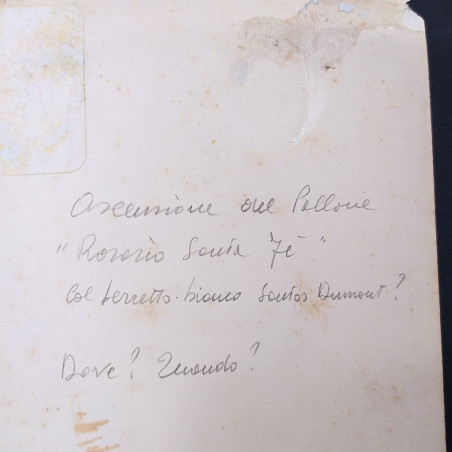 Ascensione del Pallone
"Rosario Santa Fè"
Col berretto bianco Santos Dumont?
Dove? Quando?